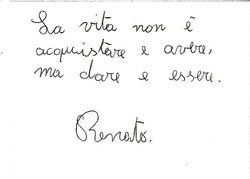 La vita non è
acquistare e avere,
ma dare e essere.
Renato.